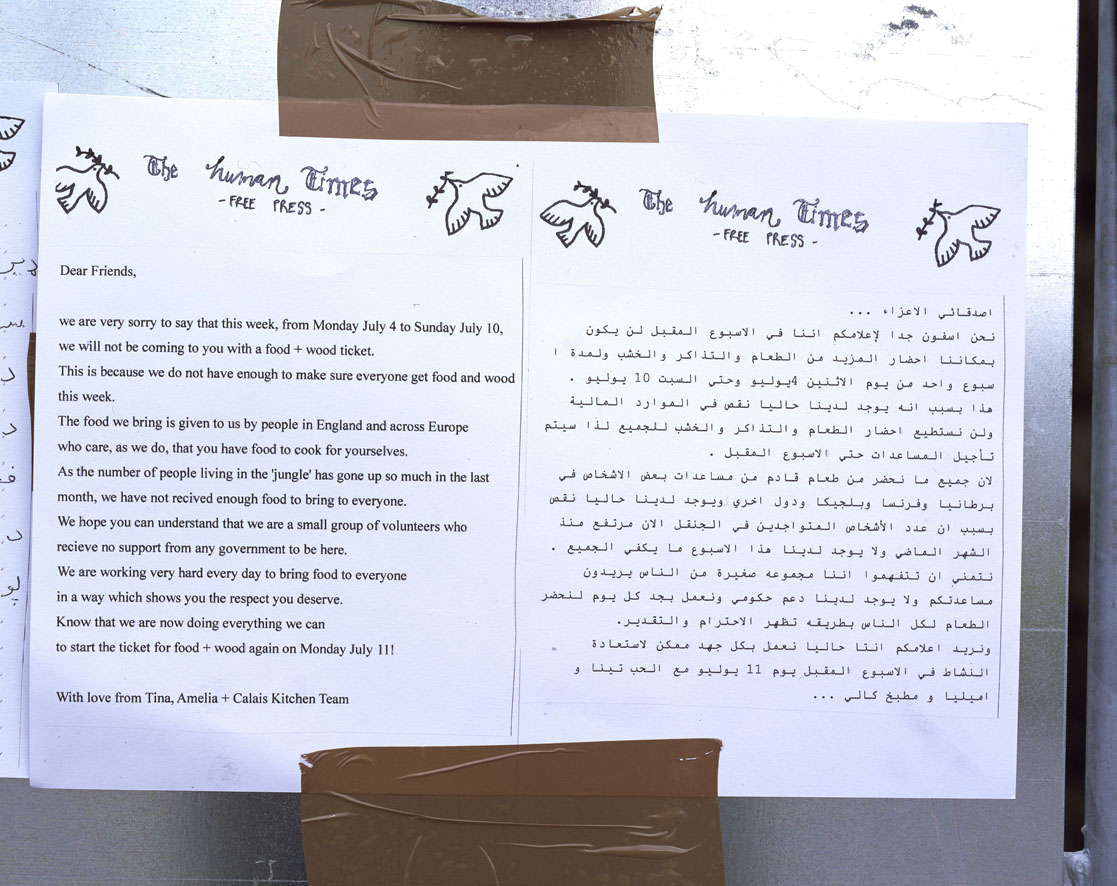 The human Times
-FREE PRESS-
Dear Friends,
we are very sorry to say that this week, from Monday July 4 to Sunday July 10,
we will not be coming to you with a food + wood ticket.
This is because we do not have enough to make sure everyone get food and wood
this week.
The food we bring is given to us by people in England and across Europe
who care, as we do, that you have food to cook for yourselves.
As the number of people living in the 'jungle' has gone up so much in the last
month, we have not recived enough food to bring to everyone.
We hope you can understand that we are a small group of volunteers who
recieve no support from any government to be here.
We are working very hard every day to bring food to everyone
in a way which shows you the respect you deserve.
Know that we are now doing everything we can
to start the ticket for food + wood again on Monday July 11!
With love from Tina, Amelia + Calais Kitchen Team
The human Times
-FREE PRESS-
اصدقائي الاعزاء ...
نحن اسفون جدا لإعلامكم اننا في الاسبوع المقبل لن يكون
بمكاننا احضار المزيد من الطعام والتذاكر والخشب ولمدة ا
سبوع واحد من يوم الاثنين 4يوليو وحتي السبت 10 يوليو .
هذا بسبب انه يوجد لدينا حاليا نقص في الموارد المالية
ولن نستطيع احضار الطعام والتذاكر والخشب للجميع لذا سيتم
تأجيل المساعدات حتي الاسبوع المقبل .
لان جميع ما نحضر من طعام قادم من مساعدات بعض الاشخاص في
برطانيا وفرنسا وبلجيكا ودول اخري ويوجد لدينا حاليا نقص
بسبب ان عدد الأشخاص المتواجدين في الجنقل الان مرتفع منذ
الشهر الماضي ولا يوجد لدينا هذا الاسبوع ما يكفي الجميع .
نتمني ان تتفهموا اننا مجموعه صغيرة من الناس يريدون
مساعدتكم ولا يوجد لدينا دعم حكومي ونعمل بجد كل يوم لنحضر
الطعام لكل الناس بطريقه تظهر الاحترام والتقدير.
ونريد اعلامكم انتا حاليا نعمل بكل جهد ممكن لاستعادة
النشاط في الاسبوع المقبل يوم 11 يوليو مع الحب تينا و
اميليا و مطبخ كالي ...